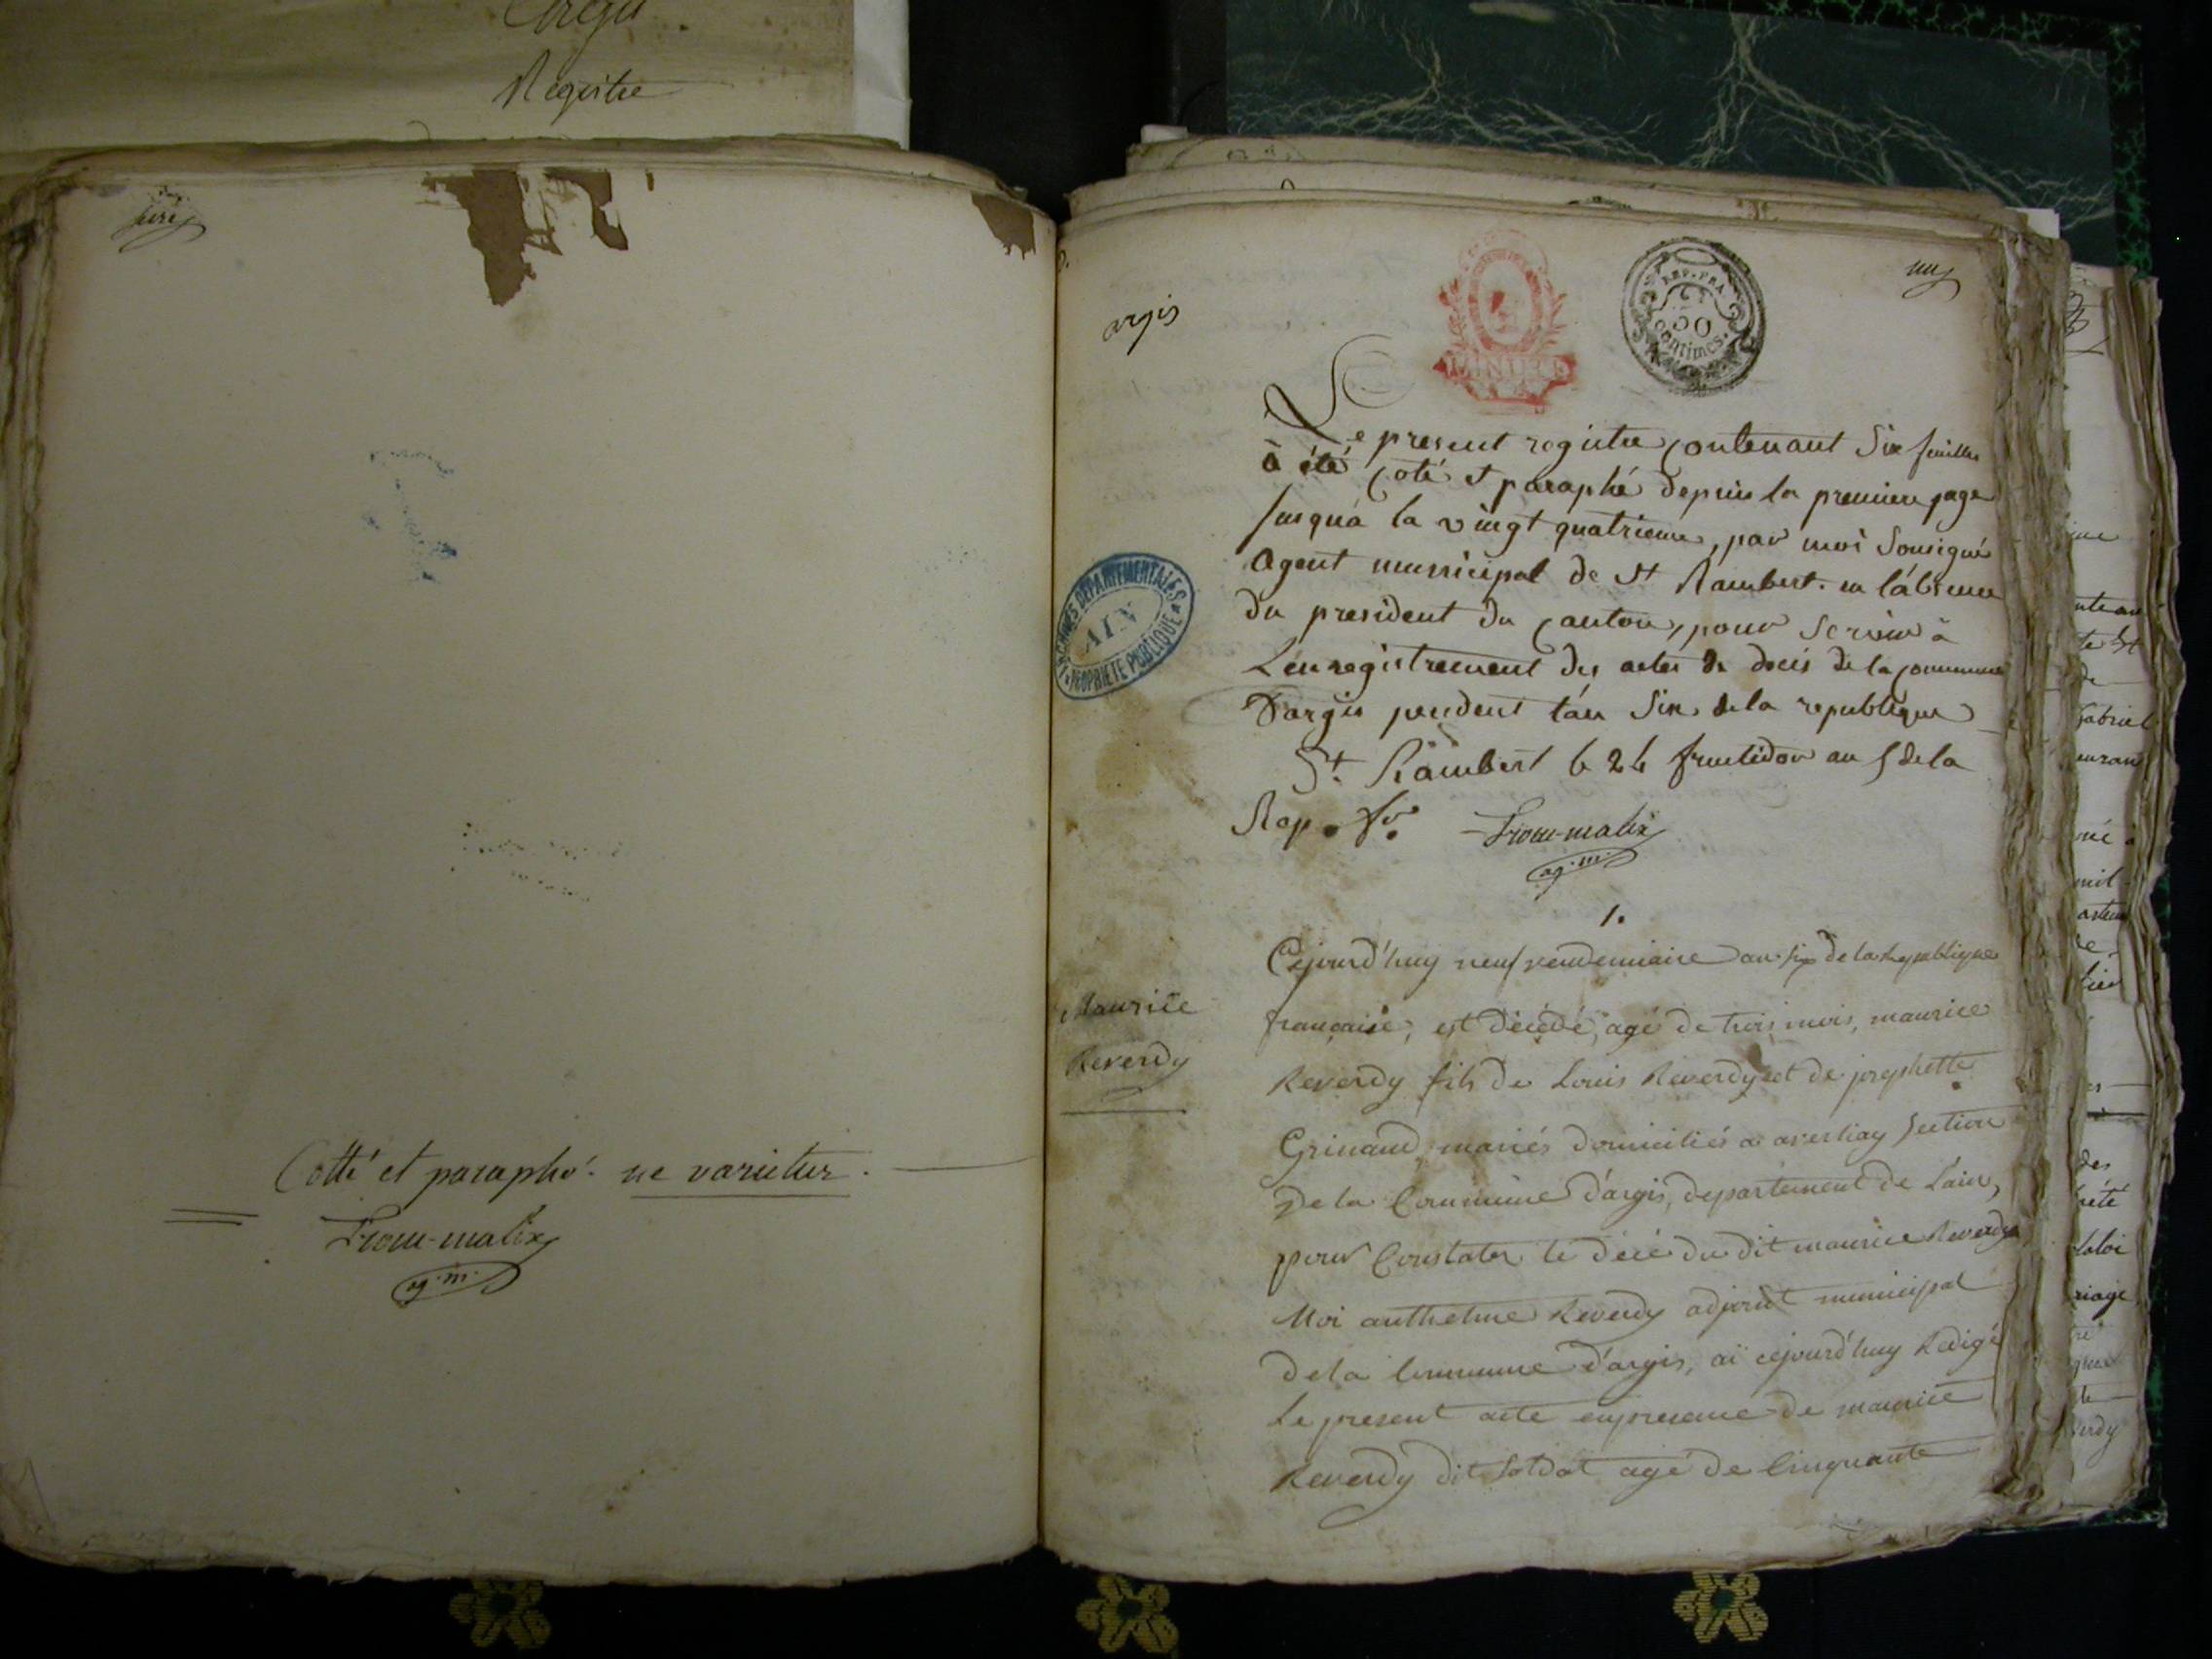 Registre
Cotté et paraphé. ne varietur.
ag. m.
argis
REP. FRA.
50
centimes.
ARCHIVES DEPARTEMENTALES
AIN
PROPRIETE PUBLIQUE
Le present registre contenant Six feuilles
à été coté et paraphé depuis la premiere page
Jusqua la vingt quatrieme, par moi Sousigné
Agent municipal de St Rambert. en l'absence
du president du canton, pour Servir à
L'enregistrement des actes de decés de la commune
D'argis pendent l'an Six de la republique
St. Rambert le 24 fructidor an 5 de la
Rep. fr.
ag. m.
1.
Maurice
Reverdy
Cejourd'huy neuf vendemiaire an six de la Republique
française, est décédé, agé de trois mois, maurice
Reverdy fils de Louis Reverdy et de josephette
Grinand, mariés domiciliés a averliaz Section
De la Commune d'argis, departement de L'ain,
pour Constater le décé du dit maurice Reverdy
Moi anthelme Reverdy adjoint municipal
de la Commune d'argis, ai cejourd'huy Redigé
Le present acte en presence de maurice
Reverdy dit Soldat agé de Cinquante